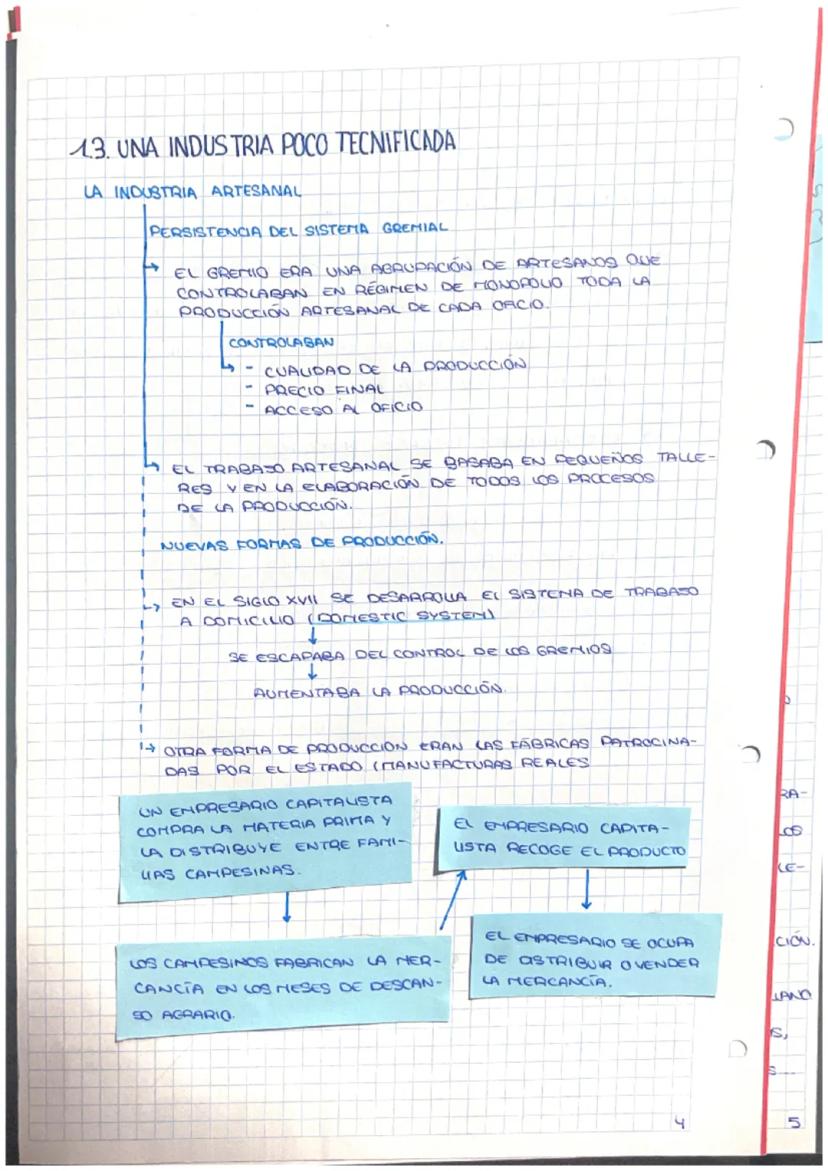 1.3. UNA INDUSTRIA POCO TECNIFICADA
LA INDUSTRIA ARTESANAL
PERSISTENCIA DEL SISTEMA GREMIAL
EL GREMIO ERA UNA AGRUPACIÓN DE ARTESANOS QUE
CONTROLABAN EN RÉGIMEN DE MONOPOLIO TODA LA
PRODUCCIÓN ARTESANAL DE CADA OFICIO.
CONTROLABAN
- CUALIDAD DE LA PRODUCCIÓN
- PRECIO FINAL
- ACCESO AL OFICIO
EL TRABAJO ARTESANAL SE BASABA EN PEQUEÑOS TALLE-
RES Y EN LA ELABORACIÓN DE TODOS LOS PROCESOS
DE LA PRODUCCIÓN.
NUEVAS FORMAS DE PRODUCCIÓN.
EN EL SIGLO XVII SE DESARROLLA EL SISTEMA DE TRABAJO
A DOMICILIO (DOMESTIC SYSTEM)
SE ESCAPABA DEL CONTROL DE LOS GREMIOS
AUMENTABA LA PRODUCCIÓN.
OTRA FORMA DE PRODUCCIÓN ERAN LAS FÁBRICAS PATROCINA-
DAS POR EL ESTADO (MANUFACTURAS REALES
UN EMPRESARIO CAPITALISTA
COMPRA LA MATERIA PRIMA Y
LA DISTRIBUYE ENTRE FAMI-
LIAS CAMPESINAS.
LOS CAMPESINOS FABRICAN LA MER-
CANCÍA EN LOS MESES DE DESCAN-
SO AGRARIO.
EL EMPRESARIO CAPITA-
LISTA RECOGE EL PRODUCTO
EL EMPRESARIO SE OCUPA
DE DISTRIBUIR O VENDER
LA MERCANCÍA.
4
RA-
LOS
LE-
CIÓN.
LANO
S,
5